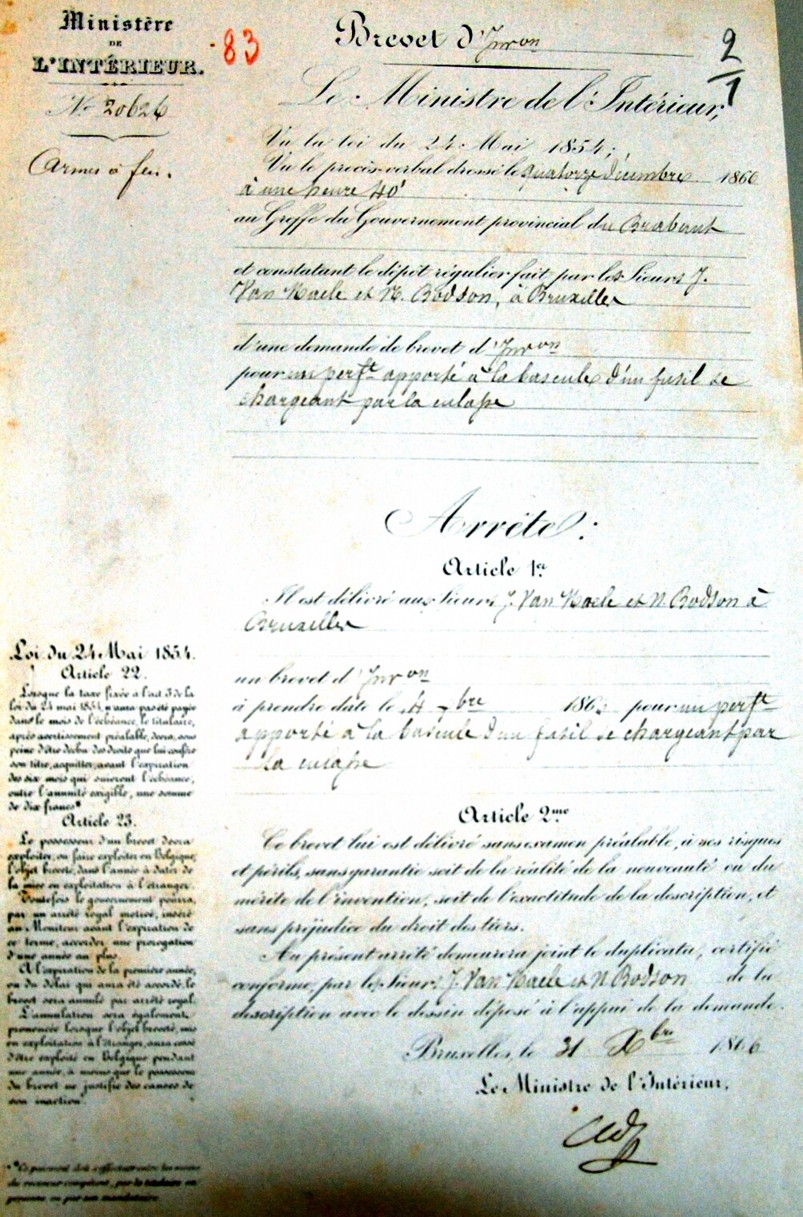 Ministère
DE
L'INTÉRIEUR.
83
Nº 20626
Armes à feu.
Brevet d'Invon
2
1
Le Ministre de l'Intérieur,
Vu la loi du 24 Mai 1854;
Vu le procès-verbal dressé le quatorze décembre 1866
à une heure 40'
au Greffe du Gouvernement provincial du Brabant
et constatant le dépôt régulier fait par les Sieurs J.
Van Maele et N. Bodson, à Bruxelles
d'une demande de brevet d'Invon
pour un perft apporté à la bascule d'un fusil se
chargeant par la culasse
Arrête:
Article 1er
Il est délivré aux Sieurs J. Van Maele et N Bodson à
Bruxelles
un brevet d'Invon
à prendre date le bre 186 pour un perft
apporté à la bascule d'un fusil se chargeant par
la culasse
Article 2me
Ce brevet lui est délivré sans examen préalable, à ses risques
et périls, sans garantie soit de la réalité de la nouveauté ou du
mérite de l'invention, soit de l'exactitude de la description, et
sans préjudice du droit des tiers.
Au présent arrêté demeurera joint le duplicata, certifié
conforme, par les Sieurs J. Van Maele et N Bodson de la
description avec le dessin déposé à l'appui de la demande.
Bruxelles, le 31 Xbre 1866
Le Ministre de l'Intérieur,
Loi du 24 Mai 1854.
Article 22.
Lorsque la taxe fixée à l'art. 3 de la
loi du 24 mai 1854, n'aura pas été payée
dans le mois de l'échéance, le titulaire,
après avertissement préalable, devra, sous
peine d'être déchu des droits que lui confère
son titre, acquitter, avant l'expiration
des six mois qui suivront l'échéance,
outre l'annuité exigible, une somme
de dix francs*
Article 23.
Le possesseur d'un brevet devra
exploiter, ou faire exploiter en Belgique,
l'objet breveté, dans l'année à dater de
la mise en exploitation à l'étranger.
Toutefois le gouvernement pourra,
par un arrêté royal motivé, inséré
au Moniteur avant l'expiration de
ce terme, accorder une prorogation
d'une année au plus.
A l'expiration de la première année,
ou du délai qui aura été accordé, le
brevet sera annulé par arrêté royal.
L'annulation sera également
prononcée lorsque l'objet breveté, mis
en exploitation à l'étranger, aura cessé
d'être exploité en Belgique pendant
une année, à moins que le possesseur
du brevet ne justifie des causes de
son inaction.
* Ce paiement doit s'effectuer entre les mains
du receveur compétent, par le titulaire en
personne ou par son mandataire